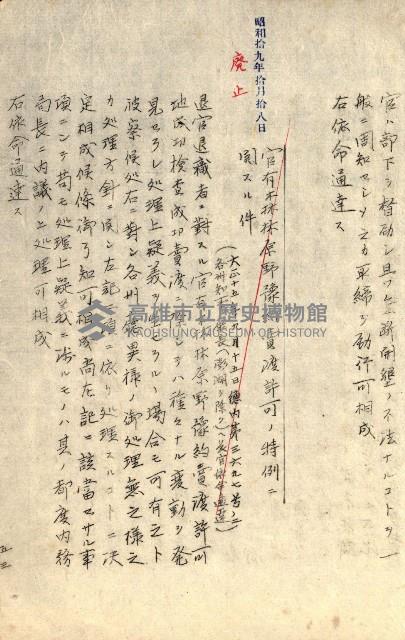 官ハ部下ヲ督励シ且ツ無断開墾ノ不法ナルコトヲ一
般ニ周知セシメ之カ取締ヲ励行可相成
右依命通達ス
昭和拾九年拾月拾八日
廃止
官有森林原野豫約賣渡許可ノ特例ニ
関スル件
(大正十五年九月十五日總内第三六九七号ノ二
各州知事庁長(澎湖ヲ除ク)長官依命通達)
退官退職者ニ対スル官有森林原野豫約賣渡許可
地成功検査成功賣渡ニ際シテハ種々ナル変動ヲ発
見セラレ処理上疑義ヲ生スル場合モ可有之ト
被察候処右ニ対シ各州庁異様ノ御処理無之様之
カ処理方針ニ関シ左記ニ依リ処理スルコトニ決
定相成候條御了知可相成尚左記ニ該当セサル事
項ニシテ苟モ処理上疑義ニ渉ルモノハ其ノ都度内務
局長ニ内議ノ上処理可相成
右依命通達ス
五三
高雄市立歷史博物館
KAOHSIUNG MUSEUM OF HISTORY